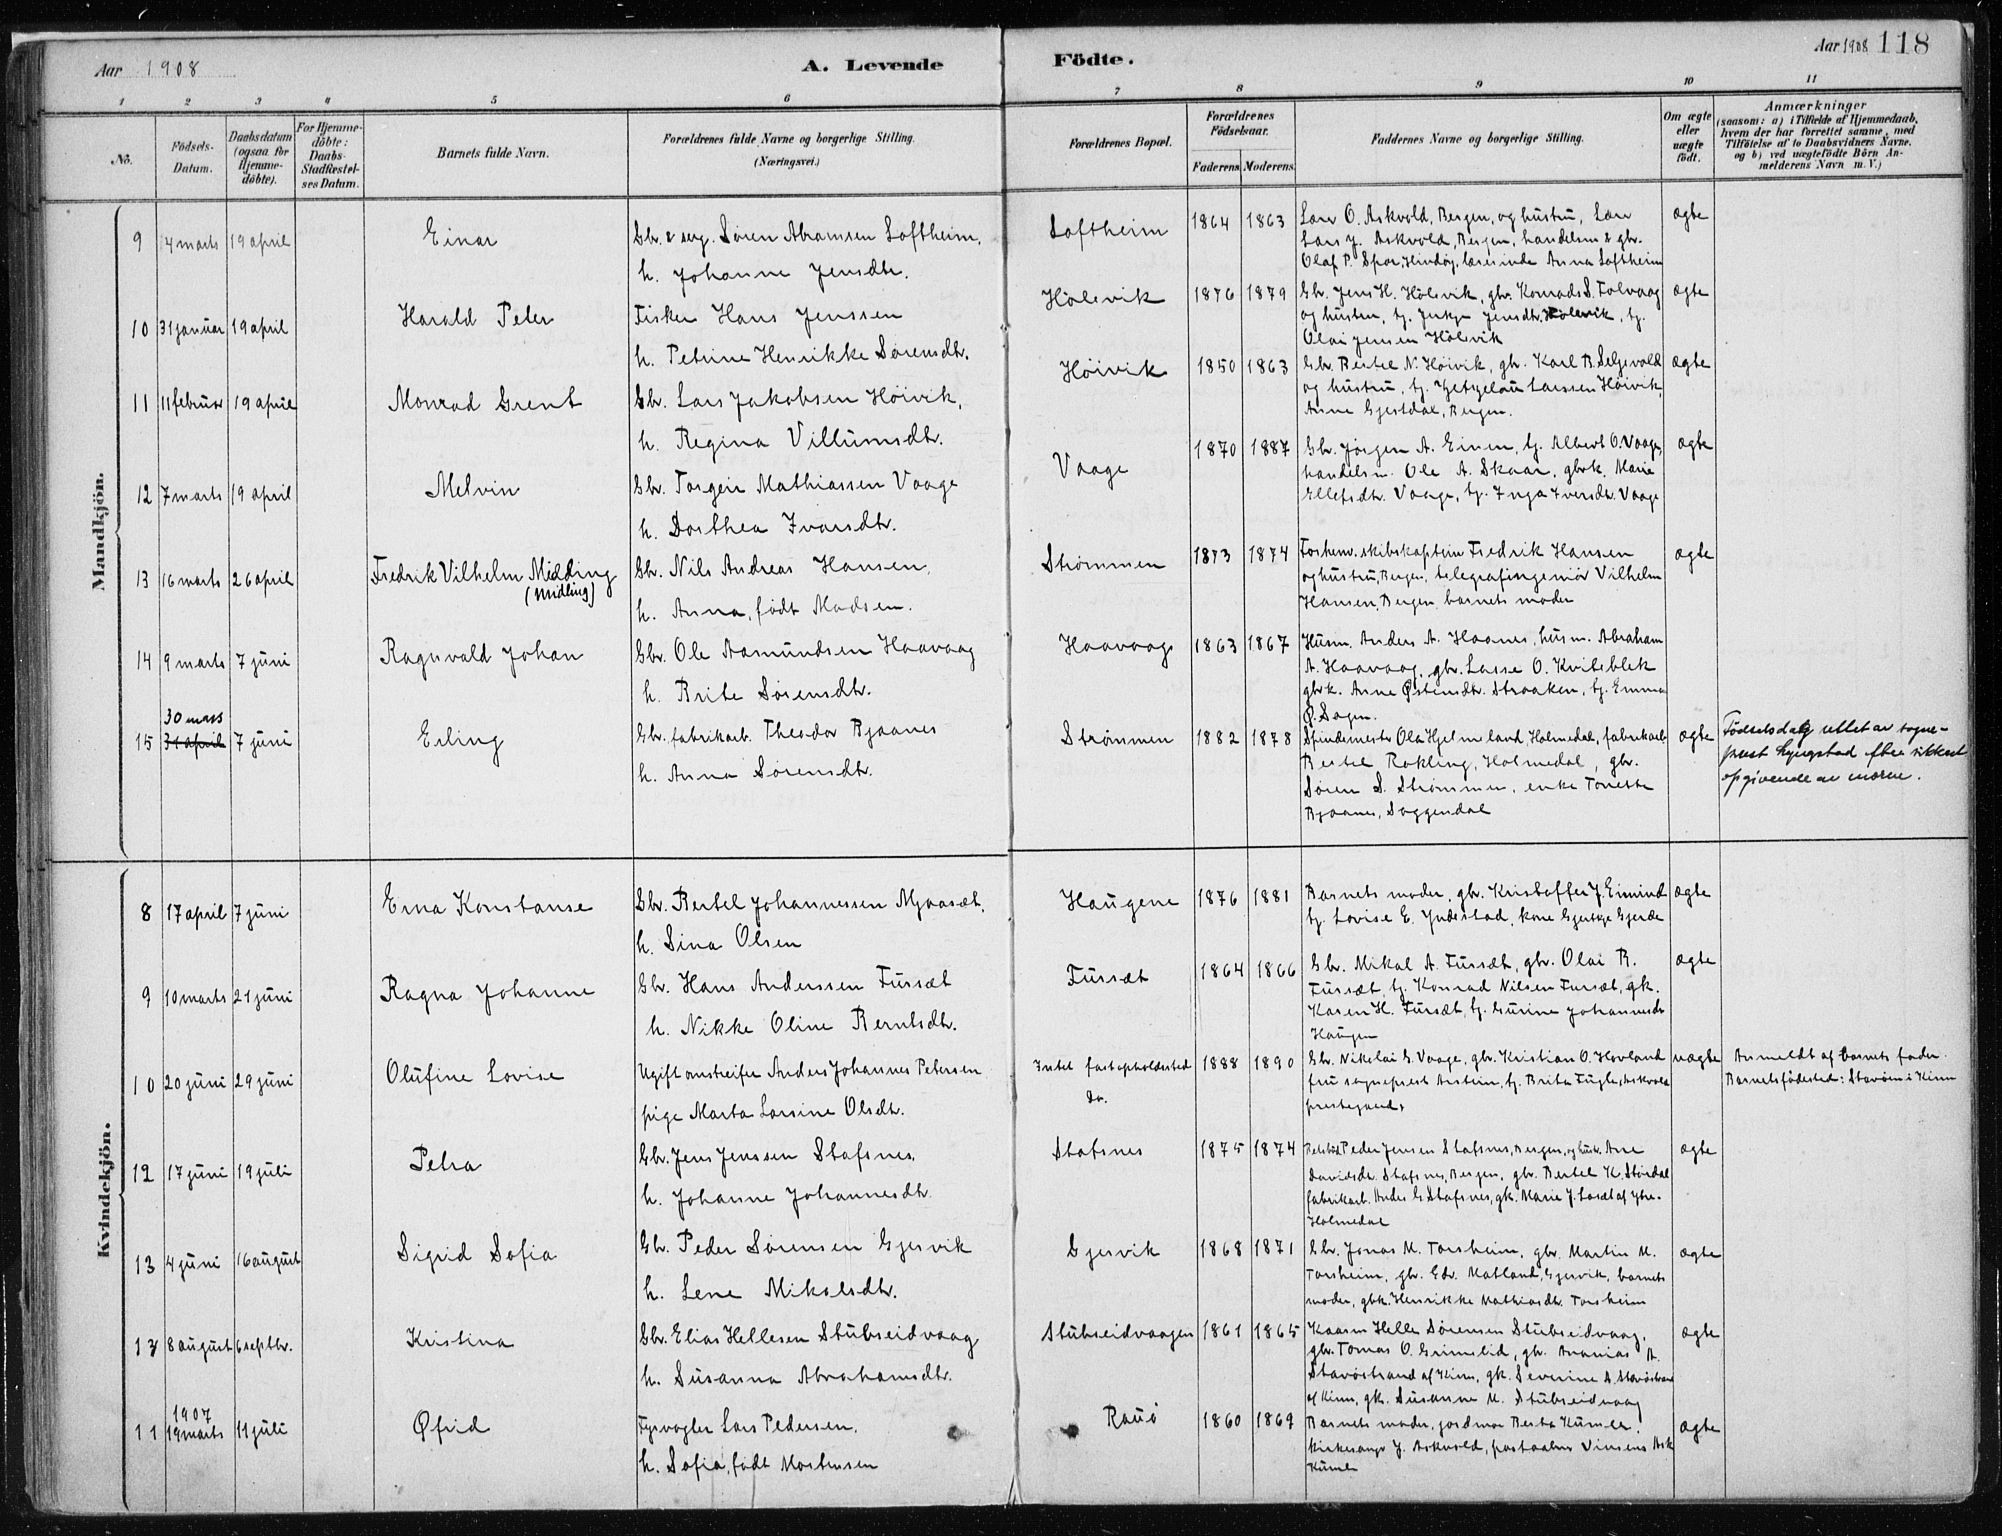 Aar 1908
A. Levende
Födte.
Aar 1908 118
1 2 3 4 5 6 7 8 9 10 11
No.
Födsels-
Datum.
Daabsdatum
(ogsaa for
Hjemme-
döbte).
For Hjemme-
döbte:
Daabs-
Stadfæstel-
ses Datum.
Barnets fulde Navn.
Forældrenes fulde Navne og borgerlige Stilling.
(Næringsvei.)
Forældrenes Bopæl.
Forældrenes
Födselsaar.
Faderens. Moderens.
Faddernes Navne og borgerlige Stilling.
Om ægte
eller
uægte
födt.
Anmærkninger
(saasom: a) i Tilfælde af Hjemmedaab,
hvem der har forrettet samme, med
Tilföielse af to Daabsvidners Navne,
og b) ved uægtefödte Börn An-
melderens Navn m. V.)
Mandkjön.
9 4 marts 19 april Einar
Gbr. & serg. Søren Abramsen Loftheim,
h. Johanne Jensdtr.
Loftheim 1864 1863
Lars O. Askvold, Bergen, og hustru,
Lars J. Askvold, Bergen, handelsm & gbr.
Olaf P. Spor, Hindøy, lærerinde Anna Loftheim
ægte
10 31 januar 19 april Harald Peter
Fisker Hans Jenssen
h. Petrine Henrikke Sørensdtr.
Hølevik 1876 1879
Gbr. Jens H. Hølevik, gbr. Konrad S. Folvaag
og hustru, tj. Jensdtr. Hølevik, tj.
Olai Jensen Hølevik
ægte
11 11 februar 19 april Monrad Grent
Gbr. Lars Jakobsen Høivik,
h. Regina Villumsdtr.
Høivik 1850 1863
Gbr. Bertel N. Høivik, gbr. Karl B. Selgevold
og hustru, tj. Larssen Høivik,
Anne Gjestdal, Bergen.
ægte
12 7 marts 19 april Melvin
Gbr. Torgeir Mathiassen Vaage
h. Dorthea Ivarsdtr.
Vaage 1870 1887
Gbr. Jørgen A. Einen, tj. Albert O. Vaage,
handelsm. Ole A. Skaar, gbrk. Marie
Ellefsdtr. Vaage, tj. Inga Iversdtr. Vaage
ægte
13 16 marts 26 april Fredrik Vilhelm Midding
(Midling)
Gbr. Nils Andreas Hansen,
h. Anna, født Madsen.
Strømmen 1873 1874
Forhenv. skibskaptein Fredrik Hansen
og hustru, Bergen, telegrafingeniør Vilhelm
Hansen, Bergen, barnets moder
ægte
14 9 marts 7 juni Ragnvald Johan
Gbr. Ole Aasmundsen Haavaag
h. Brite Sørensdtr.
Haavaag 1863 1867
Husm. Anders A. Haanes, husm. Abraham
A. Haavaag, gbr. Lasse O. Kviteblek
gbrk. Anne Østensdtr. Straaken, tj. Emma
P. Sagen.
ægte
30 mars
15 31 april 7 juni Erling
Gbr. fabrikarb. Theodor Bjaanes
h. Anna Sørensdtr.
Strømmen 1882 1878
Spindemester Ola Hjelmeland, Holmedal, fabrikarb.
Bertel Rokling, Holmedal, gbr.
Søren S. Strømmen, enke Toneste
Bjaanes, Soggendal
ægte
Fødselsdag rettet av sogne-
prest efter sikkert
opgivende av moren.
Kvindekjön.
8 17 april 7 juni Erna Konstanse
Gbr. Bertel Johannessen Myrasæt,
h. Sina Olsen
Haugene 1876 1881
Barnets moder, gbr. Kristoffer J. Eimind
tj. Lovise E. Yndestad, kone Gjertje Gjerde
ægte
9 10 marts 21 juni Ragna Johanne
Gbr. Hans Anderssen Fursæt
h. Nikke Oline Berntsdtr.
Fursæt 1864 1866
Gbr. Mikal A. Fursæt, gbr. Olai R.
Fursæt, tj. Konrad Nilsen Fursæt, gk.
Karen H. Fursæt, tj. Gurine Johannesdr
Haugen
ægte
10 20 juni 29 juni Olufine Lovise
Ugift omstreifer Anders Johannes Petersen
pige Marta Larsine Olsdtr.
Intet fast opholdssted
do.
1888 1890
Gbr. Nikolai G. Vaage, gbr. Kristian O. Hovland
fru sogneprest Anstein, tj. Brita Fugle, Askvold
prestegaard.
uægte
Anmeldt af barnets fader.
Barnets fødested: Stavøen i Kinn
12 17 juni 19 juli Petra
Gbr. Jens Jenssen Stafsnes,
h. Johanne Johannesdtr.
Stafsnes 1875 1874
Peder Jensen Stafsnes, Bergen, og hustr. Ane
Davidsdtr. Stafsnes, Bergen, gbr. Bertel K. Størdal
fabrikarb. Andes G. Stafsnes, gk. Marie J. Losæt af Ytre-
Holmedal
ægte
13 4 juni 16 august Sigrid Sofia
Gbr. Peder Sørensen Gjervik
h. Lene Mikalsdtr.
Gjervik 1868 1871
Gbr. Jonas M. Torsheim, gbr. Martin M.
Torsheim, gbr. Edv. Matland, Gjervik, barnets
moder, gbk. Henrikke Mathiasdtr. Torsheim
ægte
13 8 august 6 septbr. Kristina
Gbr. Elias Hellesen Stubseidvaag
h. Susanna Abrahamsdtr.
Stubseidvaagen 1861 1865
Kaarm Helle Sørensen Stubseidvaag,
gbr. Tomas O. Grimelid, gbr. Ananias A.
Stavøstrand af Kinn, gk. Severine A. Stavøstrand
af Kinn, gk. Susanne M. Stubseidvaag
ægte
1907
11 19 marts 11 juli Øfrid
Fyrvogter Lars Pedersen,
h. Sofia, født Mortensen
Rauø 1860 1869
Barnets moder, jordmor Berta Kumle,
kirkesanger J. Askvold, postaabner Vinsens Ask
Kumle
ægte